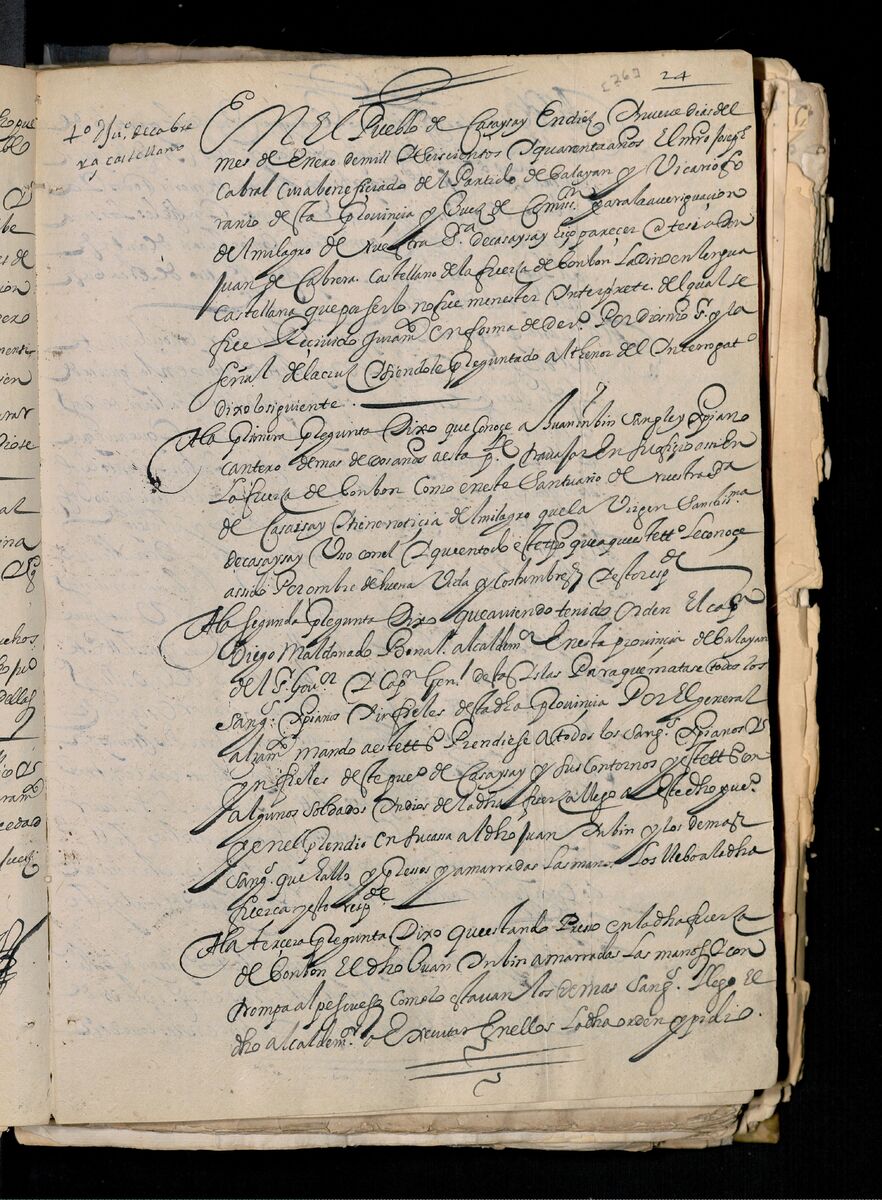 [26]
24
to Ju.º de cabre
ra castellano
EN El Pueblo de Casaysay En diez y nueve dias del
mes de Enero de mill y seiscientos y quarenta años El mro Joseph
Cabral Cura beneficiado del Partido de balayan y Vicario fo
raneo desta Provincia y Juez de Comiss.n para la averiguacion
del milagro de Nuestra S.ra de casaysay hiço parecer a
Juan de Cabrera. Castellano de la fuerza de bonbon Ladino en lengua
Castellana que por serlo no fue menester Interprete. del qual se
fue Recivido Juram.to en forma de der.º Por dios nro S.r y la
señal de la cruz y siendole Preguntado al thenor del Interrogat.º
dixo lo siguiente.
A la primera Pregunta Dixo que conoce a Juan inbin Sangley Xpiano
cantero de mas de dos años a esta p.te travajar En su ofizio assi En
La fuerza de bonbon Como en este Santuario de Nuestra S.ra
de Casaysay y tiene noticia del milagro que la Virgen Santis.ma
de casaysay Uso con el y que en todo este tpo que aqueste tt.º Le conoçe
a sido Por ombre de buena Vida y costumbres y esto resp.de
A la Segunda Pregunta Dixo que aviendo tenido orden El cap.n
Diego Maldonado Bonal. alcalde m.r En esta provincia de balayan
del S.r Gov.r y Cap.n Gen.l destas Islas Para que matase todos los
sang.s Xpianos y infieles desta dha Provincia Por El general
alzam.to mando a este tt.º Prendiese a todos los sang.s Xpianos y
ynfieles deste pue.º de Casaysay y sus contornos y este tt.º con
algunos soldados Indios de la dha fuerza llego a este dho pue.º
y en el Prendio en su cassa al dho Juan inbin y los demas
sang.s que hallo y Presos y amarradas Las manos Los llebo a la dha
fuerca y esto resp.de
A la tercera Pregunta Dixo que estando Preso en la dha fuerza
de bonbon El dho Juan inbin amarradas Las manos y con
trompa al pescueso como lo estavan los demas Sang.s llego El
dho alcalde m.r a Executar En ellos La dha orden y pidio.